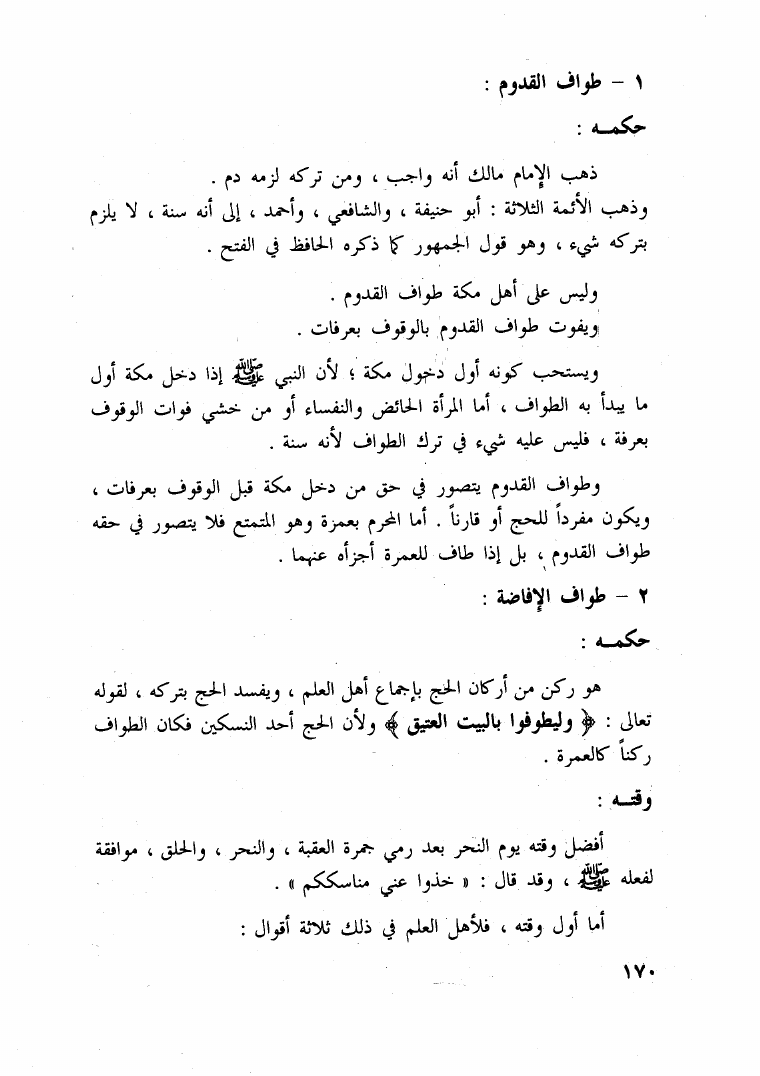 ١ - طواف القدوم :
حكمـه :
ذهب الإمام مالك أنه واجب ، ومن تركه لزمه دم .
وذهب الأئمة الثلاثة : أبو حنيفة ، والشافعي ، وأحمد ، إلى أنه سنة ، لا يلزم
بتركه شيء ، وهو قول الجمهور كما ذكره الحافظ في الفتح .
وليس على أهل مكة طواف القدوم .
ويفوت طواف القدوم بالوقوف بعرفات .
ويستحب كونه أول دخول مكة ؛ لأن النبي ﷺ إذا دخل مكة أول
ما يبدأ به الطواف ، أما المرأة الحائض والنفساء أو من خشي فوات الوقوف
بعرفة ، فليس عليه شيء في ترك الطواف لأنه سنة .
وطواف القدوم يتصور في حق من دخل مكة قبل الوقوف بعرفات ،
ويكون مفرداً للحج أو قارناً . أما المحرم بعمزة وهو المتمتع فلا يتصور في حقه
طواف القدوم ، بل إذا طاف للعمرة أجزأه عنهما .
٢ - طواف الإفاضة :
حكمـه :
هو ركن من أركان الحج بإجماع أهل العلم ، ويفسد الحج بتركه ، لقوله
تعالى : ﴿ وليطوفوا بالبيت العتيق ﴾ ولأن الحج أحد النسكين فكان الطواف
ركناً كالعمرة .
وقتـه :
أفضل وقته يوم النحر بعد رمي جمرة العقبة ، والنحر ، والحلق ، موافقة
لفعله ﷺ ، وقد قال : « خذوا عني مناسككم » .
أما أول وقته ، فلأهل العلم في ذلك ثلاثة أقوال :
١٧٠